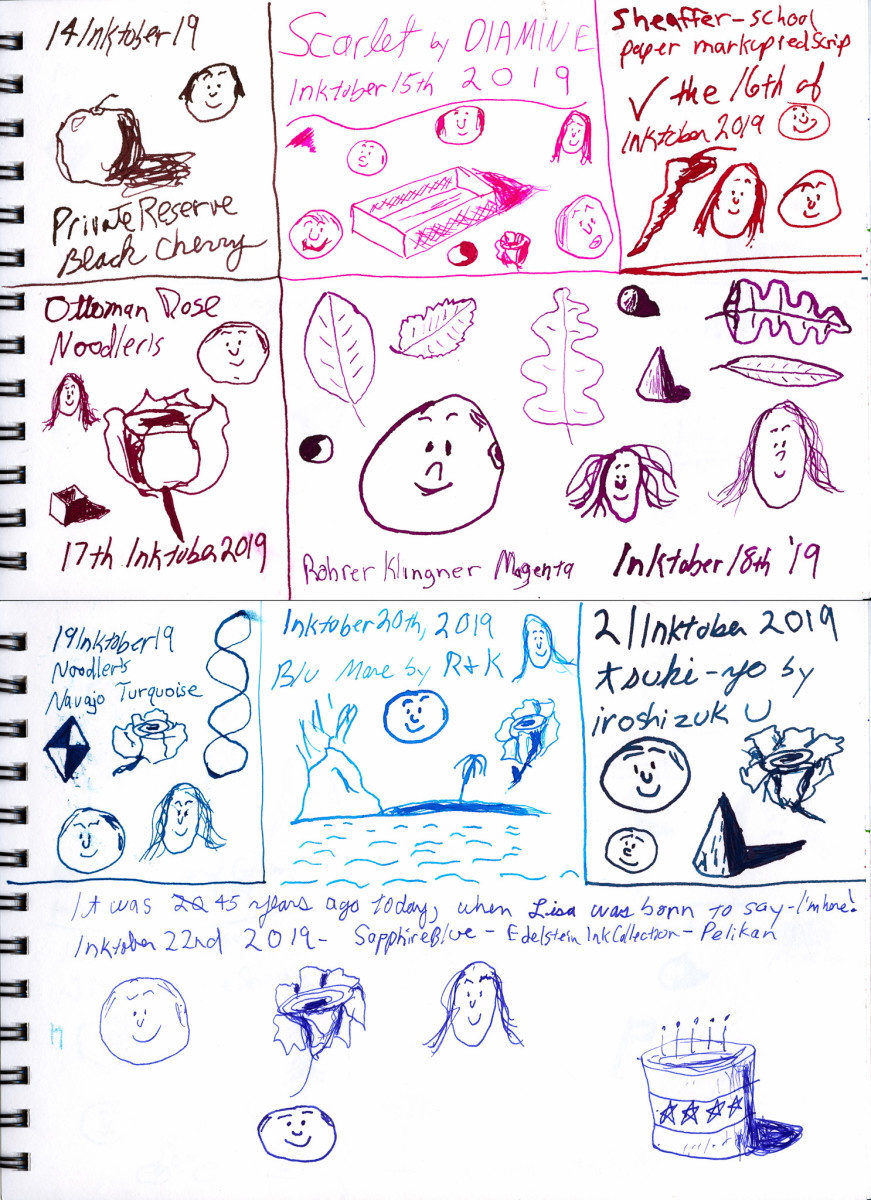 14Inktober19
Private Reserve
Black Cherry
Scarlet by DIAMINE
Inktober 15th 2019
Sheaffer-school
paper markup red Scrip
✓ the 16th of
inktober 2019
Ottoman Rose
Noodler's
17th Inktober 2019
Rohrer Klingner Magenta
Inktober 18th '19
19Inktober19
Noodler's
Navajo Turquoise
Inktober 20th, 2019
Blu Mare by R+K
21Inktober 2019
tsuki-yo by
iroshizuku
It was 45 years ago today, when Lisa was born to say-I'm here!
Inktober 22nd 2019- Sapphire Blue - Edelstein Ink Collection - Pelikan